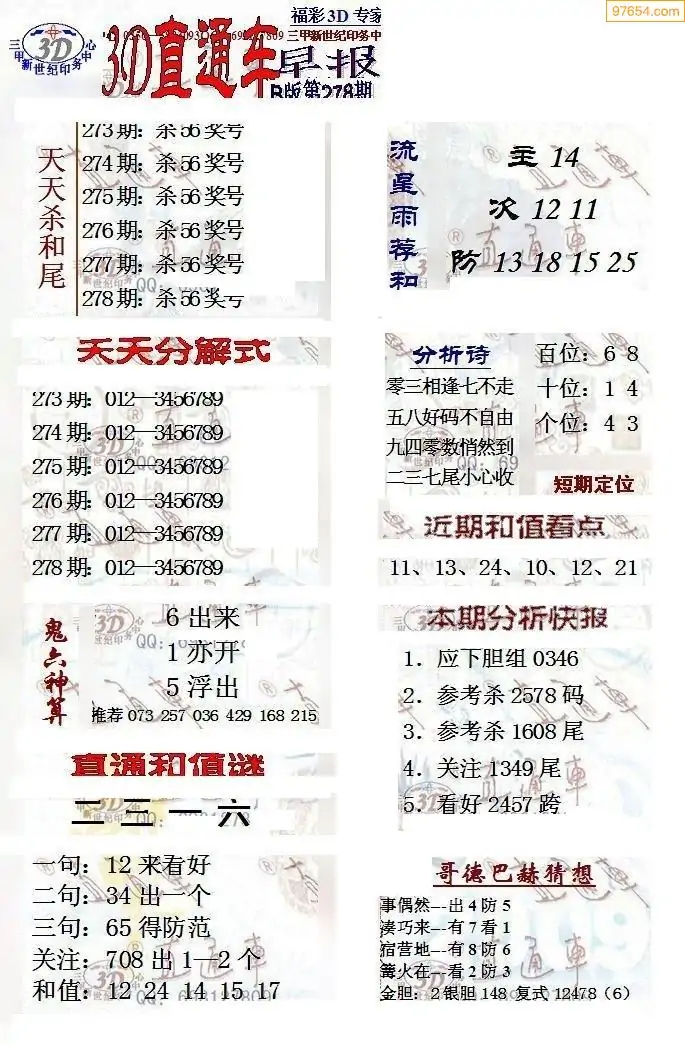 97654.com
福彩3D 专家
三甲新世纪印务中心
3D
3D直通车
早报
B版第278期
天天杀和尾
273期: 杀56奖号
274期: 杀56奖号
275期: 杀56奖号
276期: 杀56奖号
277期: 杀56奖号
278期: 杀56奖号
流星雨荐和
主 14
次 12 11
防 13 18 15 25
天天分解式
273期: 012—3456789
274期: 012—3456789
275期: 012—3456789
276期: 012—3456789
277期: 012—3456789
278期: 012—3456789
分析诗
零三相逢七不走
五八好码不自由
九四零数悄然到
二三七尾小心收
百位: 6 8
十位: 1 4
个位: 4 3
短期定位
近期和值看点
11、13、24、10、12、21
鬼六神算
6出来
1亦开
5浮出
推荐 073 257 036 429 168 215
本期分析快报
1. 应下胆组0346
2. 参考杀2578码
3. 参考杀1608尾
4. 关注1349尾
5. 看好2457跨
直通和值谜
二三一六
一句: 12来看好
二句: 34出一个
三句: 65得防范
关注: 708出1—2个
和值: 12 24 14 15 17
哥德巴赫猜想
事偶然---出4防5
凑巧来---有7看1
宿营地---有8防6
篝火在---看2防3
金胆: 2银胆148 复式12478（6）